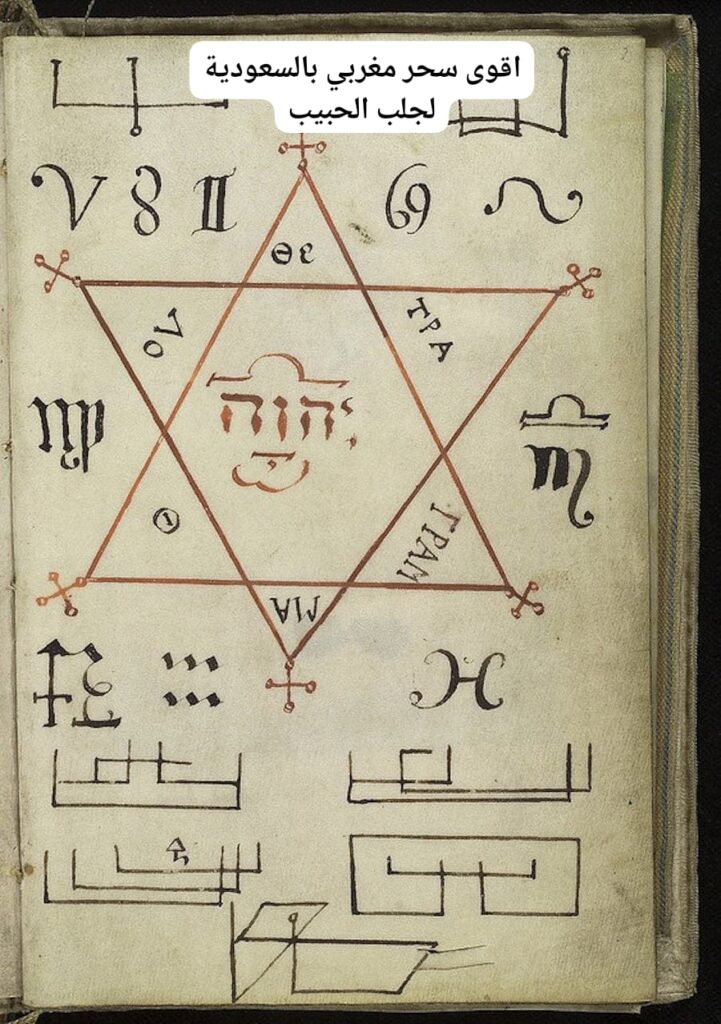 اقوى سحر مغربي بالسعودية
لجلب الحبيب
ΤΡΑ
יהוה
ΓΡΑΜ
ΜΑ